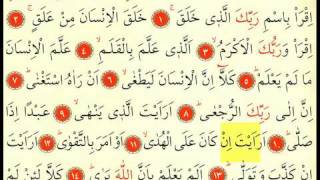 اِقْرَأْ بِاسْمِ رَبِّكَ الَّذٖي خَلَقَۚ ﴿١﴾ خَلَقَ الْاِنْسَانَ مِنْ عَلَقٍۚ ﴿٢﴾
اِقْرَأْ وَرَبُّكَ الْاَكْرَمُۙ ﴿٣﴾ اَلَّذٖي عَلَّمَ بِالْقَلَمِۙ ﴿٤﴾ عَلَّمَ الْاِنْسَانَ
مَا لَمْ يَعْلَمْؕ ﴿٥﴾ كَلَّٓا اِنَّ الْاِنْسَانَ لَيَطْغٰىۙ ﴿٦﴾ اَنْ رَاٰهُ اسْتَغْنٰىؕ ﴿٧﴾
اِنَّ اِلٰى رَبِّكَ الرُّجْعٰىؕ ﴿٨﴾ اَرَاَيْتَ الَّذٖي يَنْهٰىۙ ﴿٩﴾ عَبْدًا اِذَا
صَلّٰىؕ ﴿١٠﴾ اَرَاَيْتَ اِنْ كَانَ عَلَى الْهُدٰىۙ ﴿١١﴾ اَوْ اَمَرَ بِالتَّقْوٰىؕ ﴿١٢﴾ اَرَاَيْتَ
اِنْ كَذَّبَ وَتَوَلّٰىؕ ﴿١٣﴾ اَلَمْ يَعْلَمْ بِاَنَّ اللّٰهَ يَرٰىؕ ﴿١٤﴾ كَلَّا لَئِنْ لَمْ